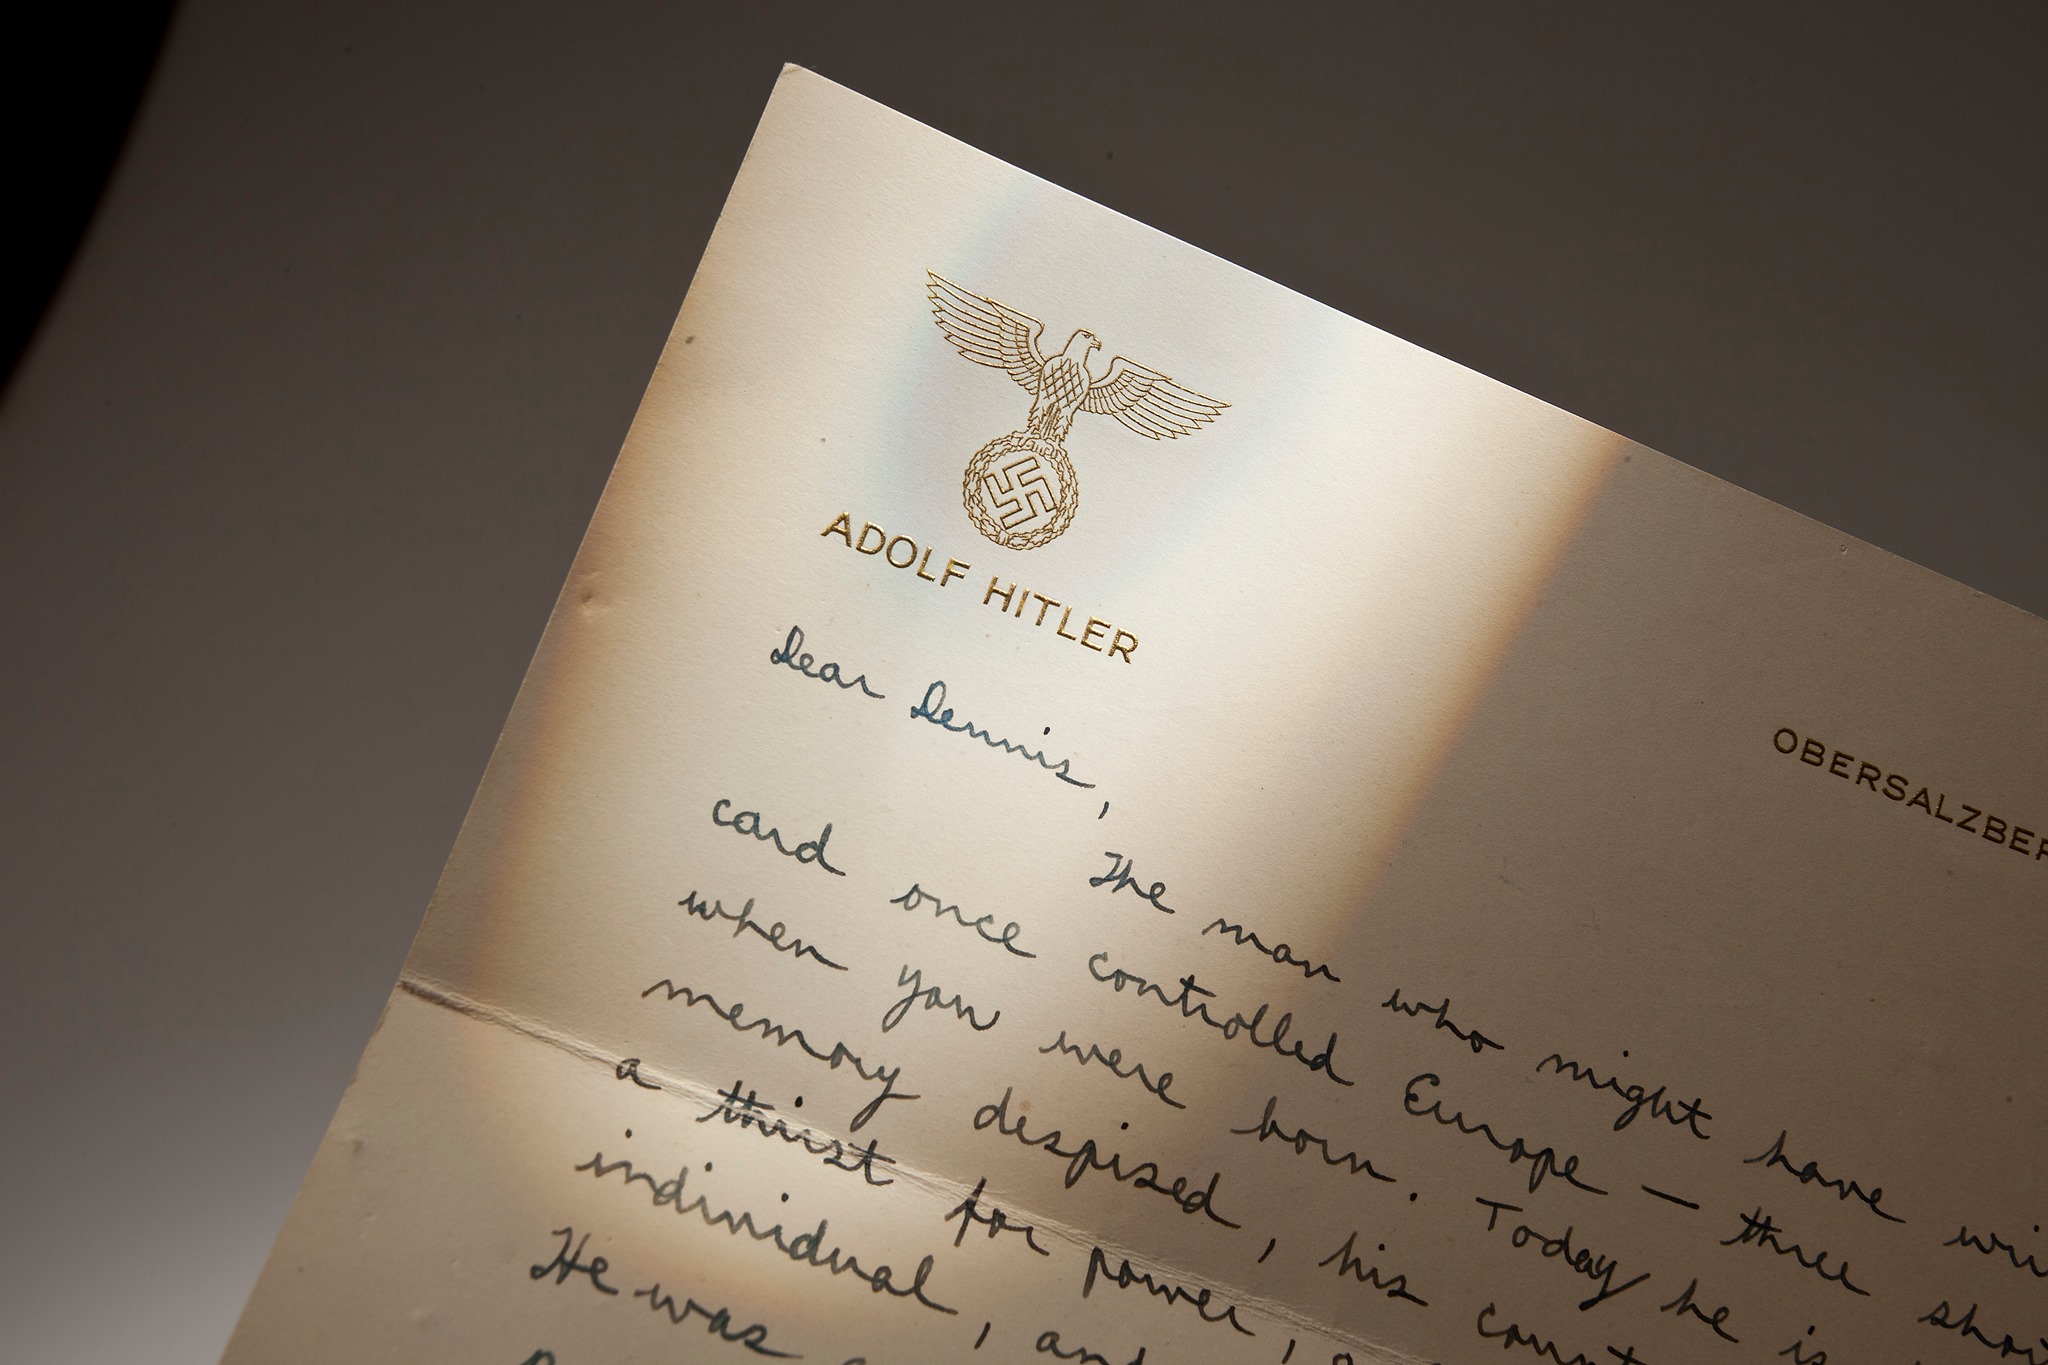 ADOLF HITLER
OBERSALZBER
Dear Dennis,
The man who might have wri
card once controlled Europe — three shor
when you were born. Today he is
memory despised, his count
a thirst for power, a
individual, and
He was